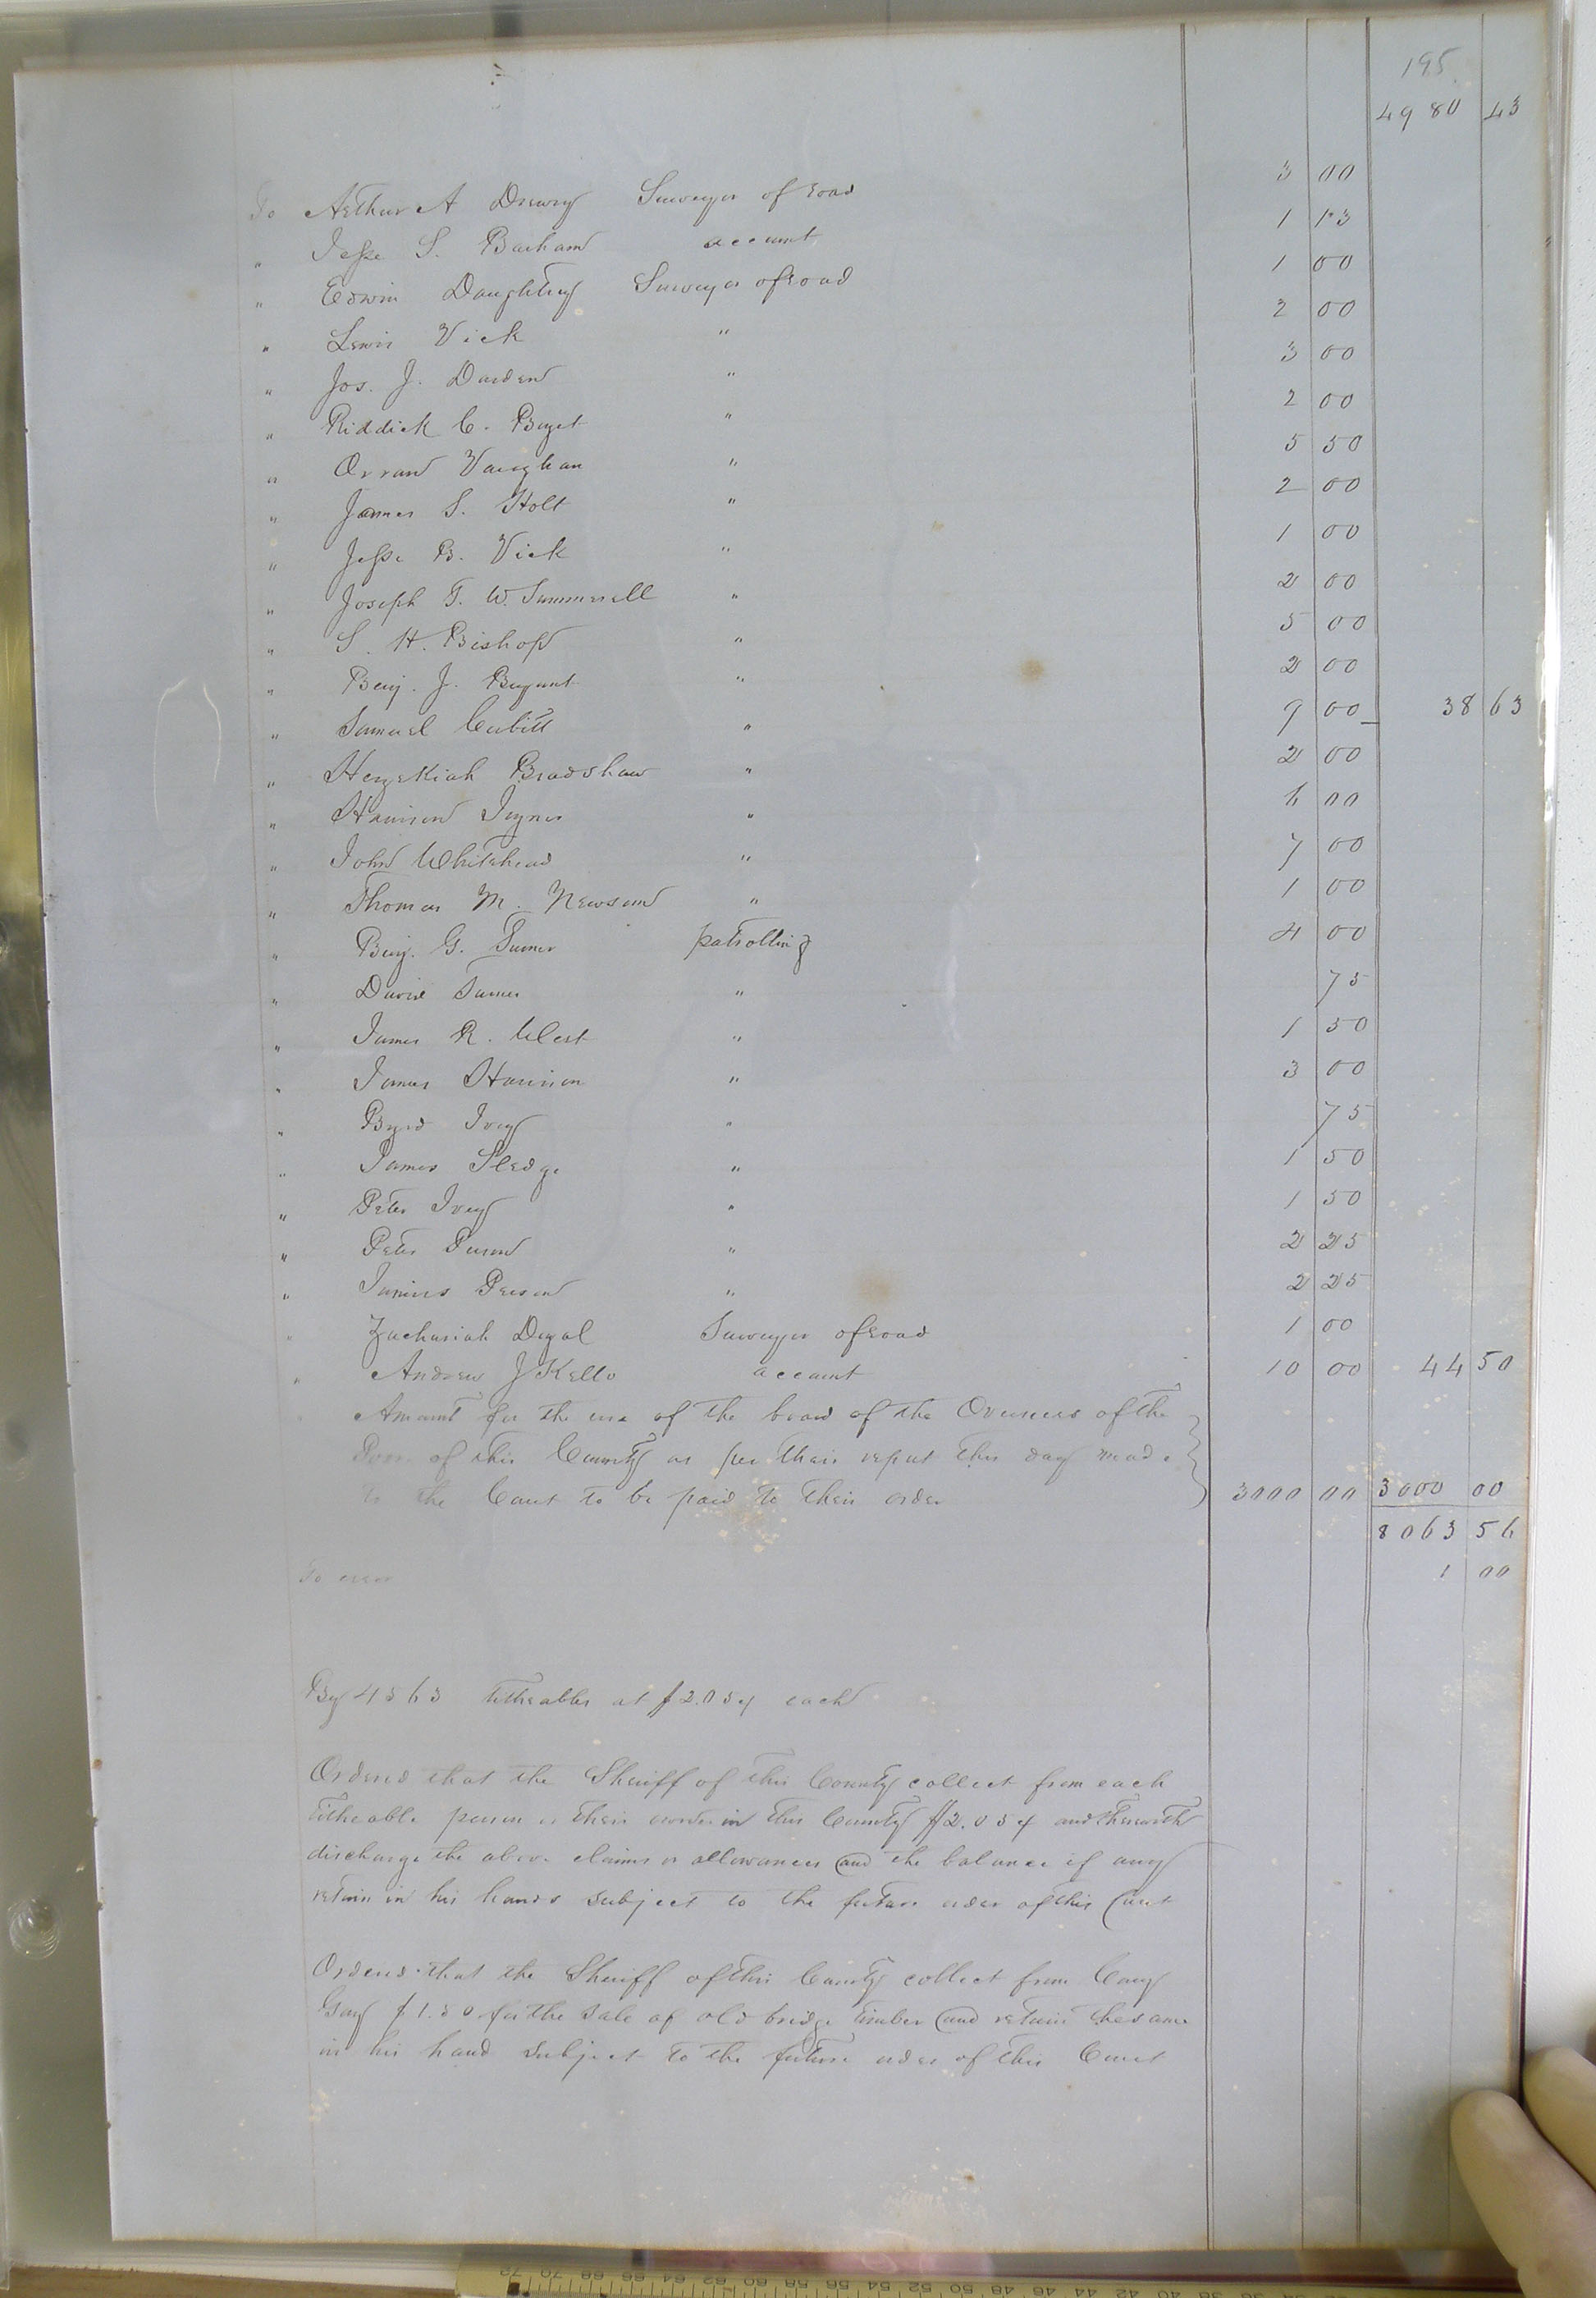 195
4980 43
To Arthur A Drewry Surveyor of road 3 00
" Jesse S. Barham account 1 13
" Edwin Daughtrey Surveyor of road 1 00
" Lewis Vick " 2 00
" Jos. J. Darden " 3 00
" Riddick C. " 2 00
" Orran Vaughan " 5 50
" James S. Holt " 2 00
" Jesse B. Vick " 1 00
" Joseph T. W. Summerell " 2 00
" S. H. Bishop " 5 00
" Benj. J. Bryant " 2 00
" Samuel Corbitt " 9 00 38 63
" Hezekiah Bradshaw " 2 00
" Harrison Joyner " 6 00
" John Whitehead " 7 00
" Thomas M. Newsom " 1 00
" Benj. G. Turner patrolling 4 00
" David Turner " 75
" James R. West " 1 50
" James Harrison " 3 00
" Byrd Ivey " 75
" James Sledge " 1 50
" Peter Ivey " 1 50
" Peter Person " 2 25
" Junius Person " 2 25
" Zachariah Surveyor of road 1 00
" Andrew J Kello account 10 00 44 50
" Amount for the use of the board of the Overseers of the
Poor of this County as per their report this day made
to the Court to be paid to their order 3000 00 3000 00
8063 56
To error 1 00
By 4563 titheables at $2.05 each
Ordered that the Sheriff of this County collect from each
titheable person in this County $2.05 and therewith
discharge the above claims or allowances and the balance if any
retain in his hands subject to the future order of this Court
Ordered that the Sheriff of this County collect from
Gay $1.50 for the sale of old bridge timber and retain the same
in his hand subject to the future order of this Court
72 70 68 66 64 62 60 58 56 54 52 50 48 46 44 42 40 38 36